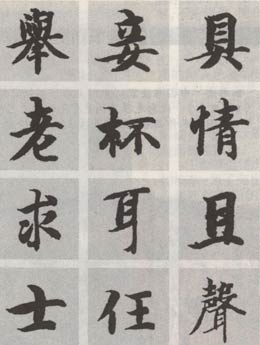 具情且聲
妾杯耳任
舉老求士